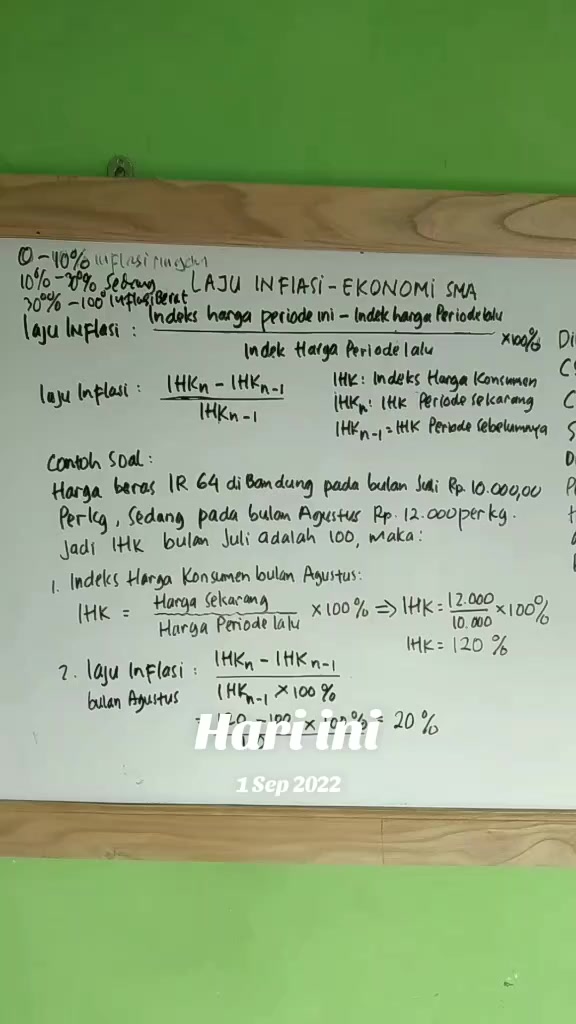 0 - 10% inflasi ringan
10% - 30% Sedang
30% - 100% Inflasi Berat
LAJU INFlASi - EKONOMI SMA
laju Inflasi : Indeks harga periode ini - Indek harga Periode lalu
Indek Harga Periode lalu
×100%
laju Inflasi : IHKn - IHKn-1
IHKn-1
IHK : Indeks Harga Konsumen
IHKn : IHK Periode sekarang
IHKn-1 = IHK Periode Sebelumnya
Contoh Soal :
Harga beras IR 64 di Bandung pada bulan Juli Rp. 10.000,00
Perkg, Sedang pada bulan Agustus Rp. 12.000 per kg.
Jadi IHK bulan Juli adalah 100, maka :
1. Indeks Harga Konsumen bulan Agustus :
IHK = Harga Sekarang
Harga Periode lalu
×100% ⇒ IHK = 12.000
10.000
×100%
IHK = 120 %
2. laju Inflasi : IHKn - IHKn-1
bulan Agustus IHKn-1 × 100 %
= 120 - 100 × 100% = 20 %
Hari ini
1 Sep 2022